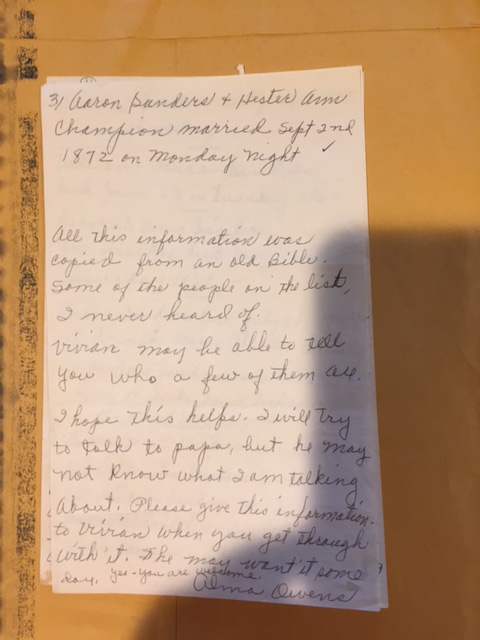 3) Aaron Sanders & Hester Ann
Champion married Sept 2nd
1872 on Monday Night ✓
All this information was
copied from an old Bible.
Some of the people on the list,
I never heard of.
Vivian may be able to tell
you who a few of them are.
I hope this helps. I will try
to talk to papa, but he may
not know what I am talking
About. Please give this information
to Vivian when you get through
with it. She may want it some
day. Yes - you are welcome.
Alma Owens